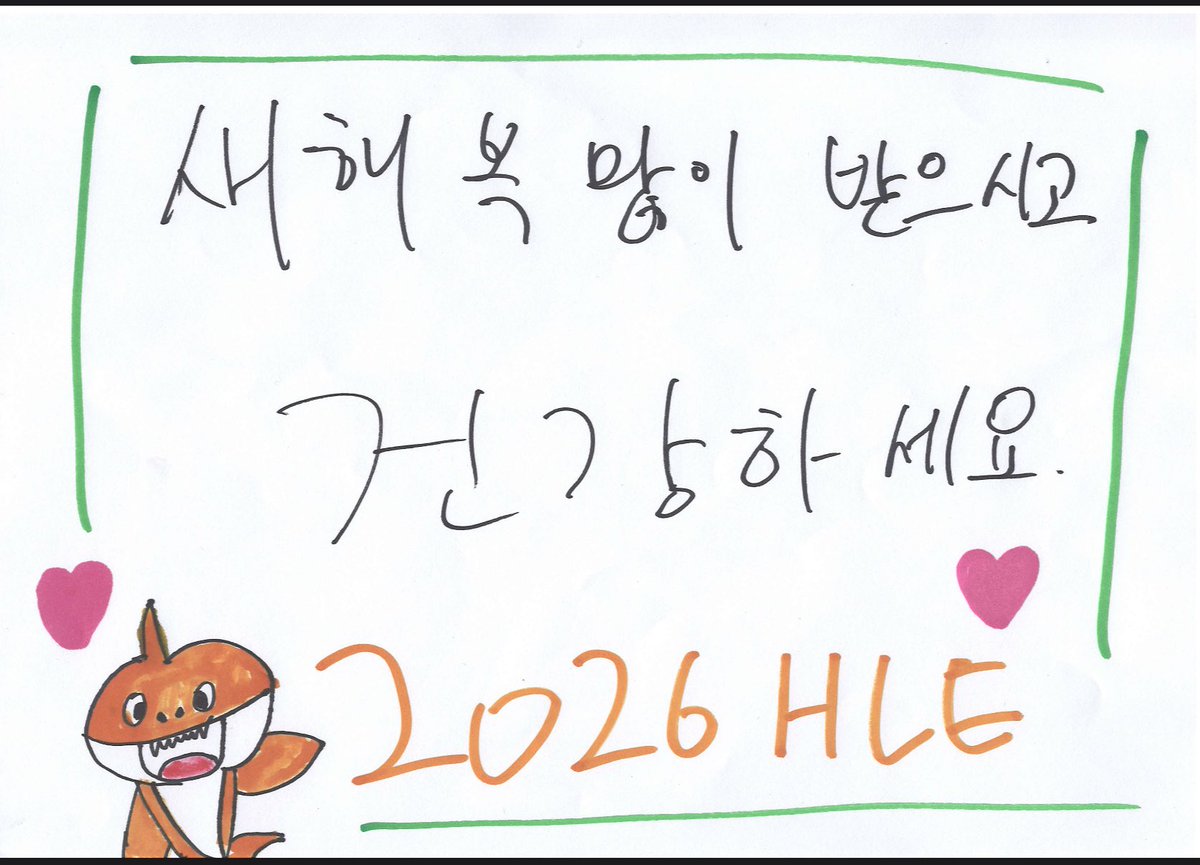 새해 복 많이 받으시고
건강하세요.
2026 HLE